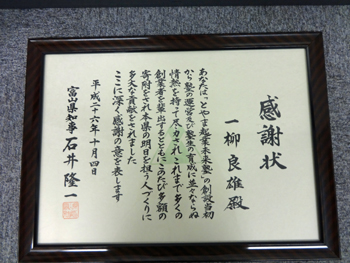 感謝状
一柳良雄殿
あなたは"とやま起業未来塾"の創設当初
から塾の運営及び塾生の育成に並々ならぬ
情熱を持って尽力され これまで多くの
創業者を輩出するとともにこのたび多額の
寄附をされ本県の明日を担う人づくりに
多大な貢献をされました
ここに深く感謝の意を表します
平成二十六年十月四日
富山県知事 石井隆一